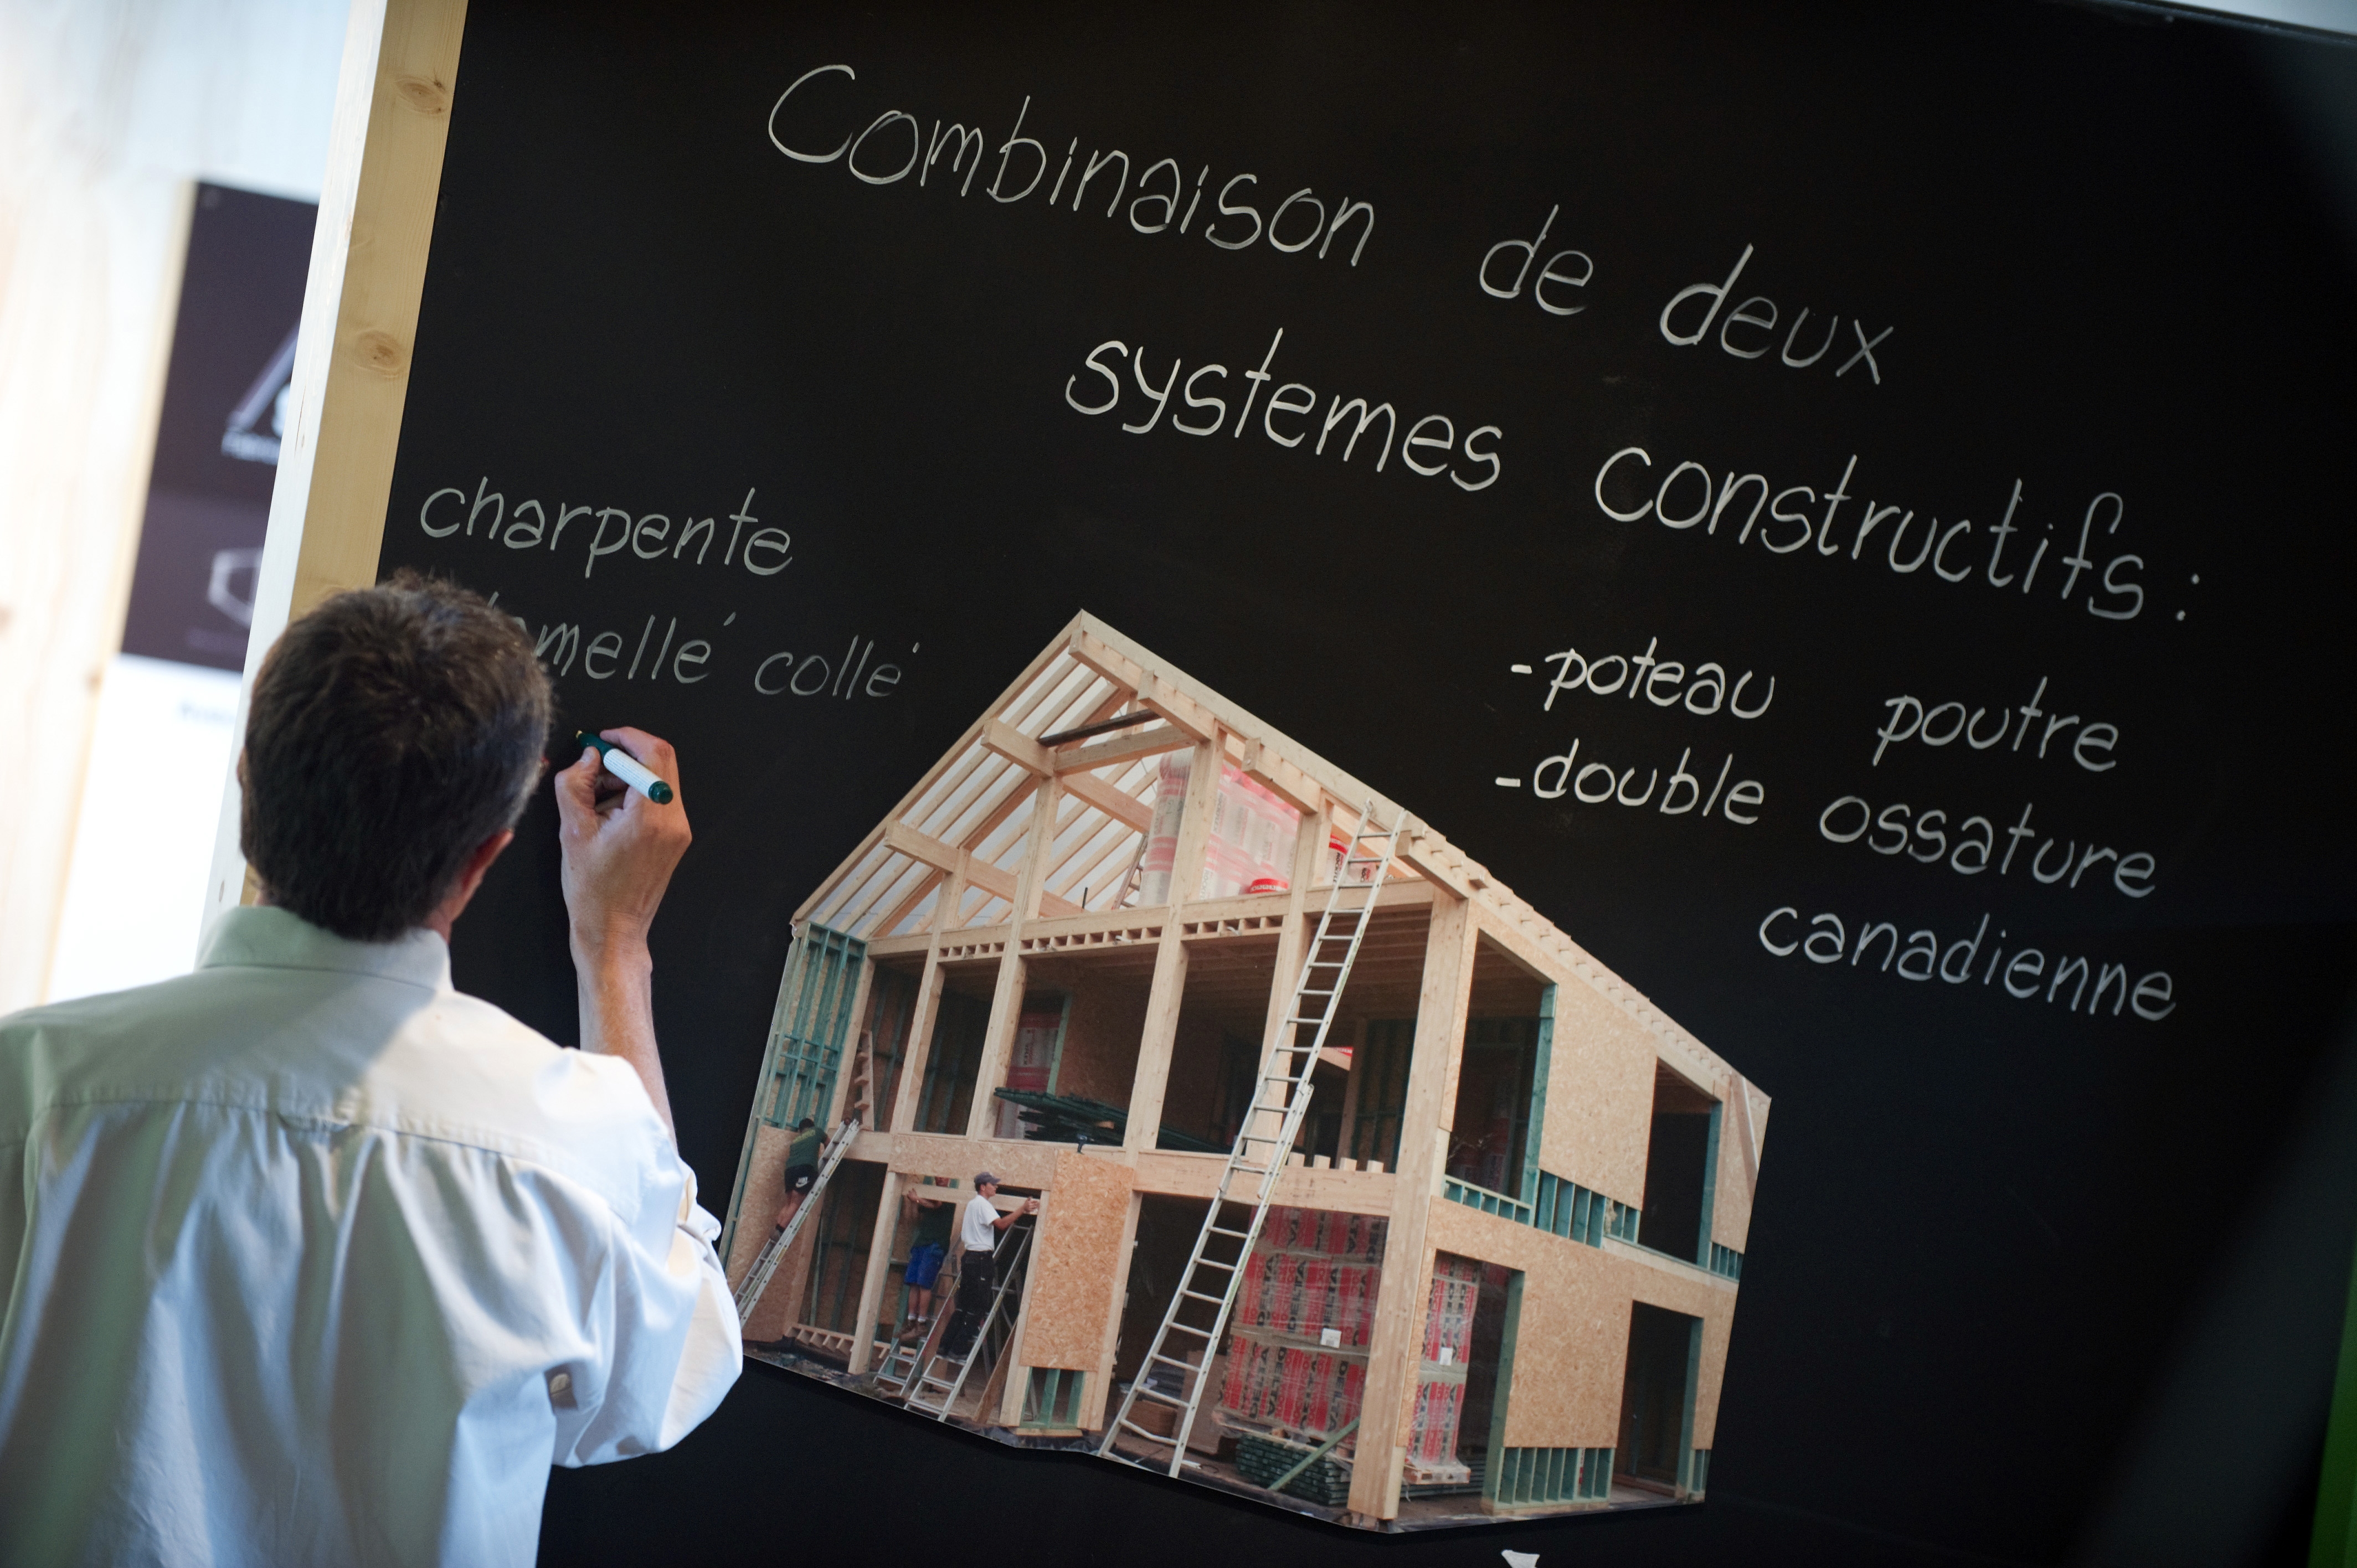 Combinaison de deux
systemes constructifs :
charpente
collé
-poteau poutre
-double ossature
canadienne